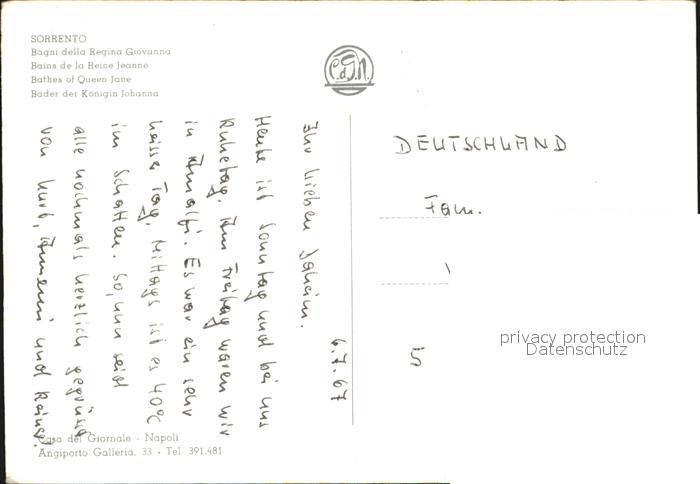 SORRENTO
Bagni della Regina Giovanna
Bains de la Reine Jeanne
Bathes of Queen Jane
Bäder der Königin Johanna
C.d.G.N.
6.7.67
Ihr Lieben Daheim.
Heute ist Sonntag und bei uns
Ruhetag. Am Freitag waren wir
in Amalfi. Es war ein sehr
heisser Tag, Mittags ist es 40°C
im Schatten. So, nun seid
alle nochmals herzlich gegrüsst
von Kurt, und Rainer.
DEUTSCHLAND
Fam.
5
privacy protection
Datenschutz
Casa del Giornale - Napoli
Angiporto Galleria, 33 - Tel. 391.481